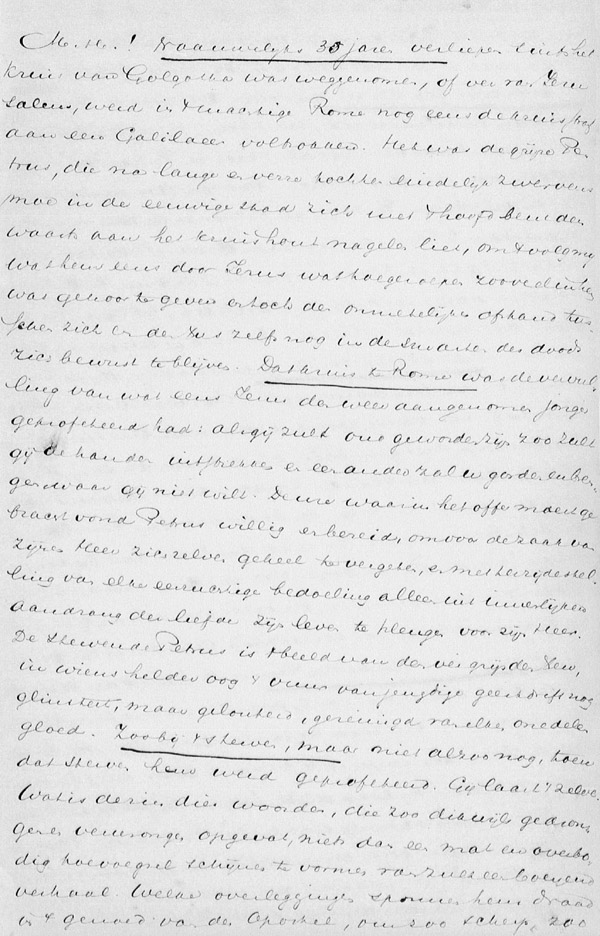 M. H.! Naauwelijks 35 jaren verliepen sints het
kruis van Golgotha was weggenomen, of ver van Jeru
salem, werd in 't machtige Rome nog eens de kruisstraf
aan een Galileer voltrokken. Het was de grijze Pe
trus, die na lange en verre tochten eindelijk zwervens
moe in de eeuwige stad zich met 't hoofd beneden
waarts aan het kruishout nagelen liet, om 't volg mij
wat hem eens door Jezus was toegeroepen zoo
was gehoor te geven en toch den onmetelijken afstand tus
schen zich en den zelfs nog in de smarten des doods
zich bewust te blijven. Dat kruis te Rome was de vervul-
ling van wat eens Jezus den weer aangenomen jonger
geprofeteerd had: als gij zult oud geworden zijn zoo zult
gij de handen uitstrekken en een ander zal u gorden en bren-
gen waar gij niet wilt. De ure waarin het offer moest ge
bracht vond Petrus willig en bereid, om voor de zaak van
zijnen Heer zich zelven geheel te vergeten, en met
ling van elke eerzuchtige bedoeling alleen uit innerlijken
aandrang der liefde zijn leven te plengen voor zijn Heer.
De stervende Petrus is 't beeld van den
in wiens helder oog 't vuur van jeugdige geestdrift nog
glinstert, maar gelouterd, gereinigd van elken onedelen
gloed. Zoo hij 't sterven, maar niet alzoo nog, toen
dat sterven hem werd geprofeteerd. Gij laast 't zelve.
Wat is de zin dier woorden, die zoo dikwijls gedron
gen verwrongen opgevat, niets dan een mat en overbo
dig toevoegsel schijnen te vormen van zulk een boeijend
verhaal. Welke overleggingen sponnen hun draad
in 't gemoed van den Apostel, om zoo scherp, zoo